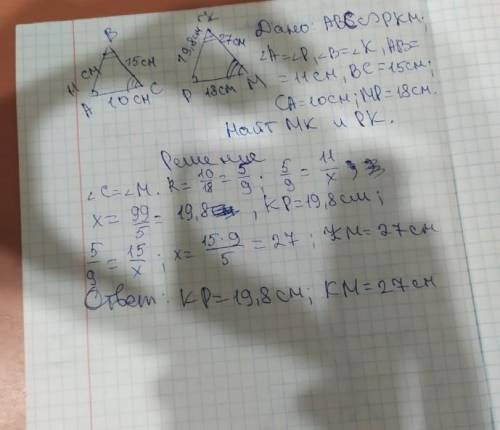 B
K
Дано: ABC∽PKM;
11 см
15 см
19,8 см
27 см
∠A=∠P, ∠B=∠K, AB=
A
10 см
C
P
18 см
M
=11 см, BC=15 см;
CA=10 см; MP=18 см.
Найт MK и PK.
Решение
∠C=∠M. k=10/18=5/9; 5/9=11/x;
x=99/5=19,8, KP=19,8 см;
5/9=15/x; x=15·9/5=27; KM=27 см
Ответ: KP=19,8 см; KM=27 см